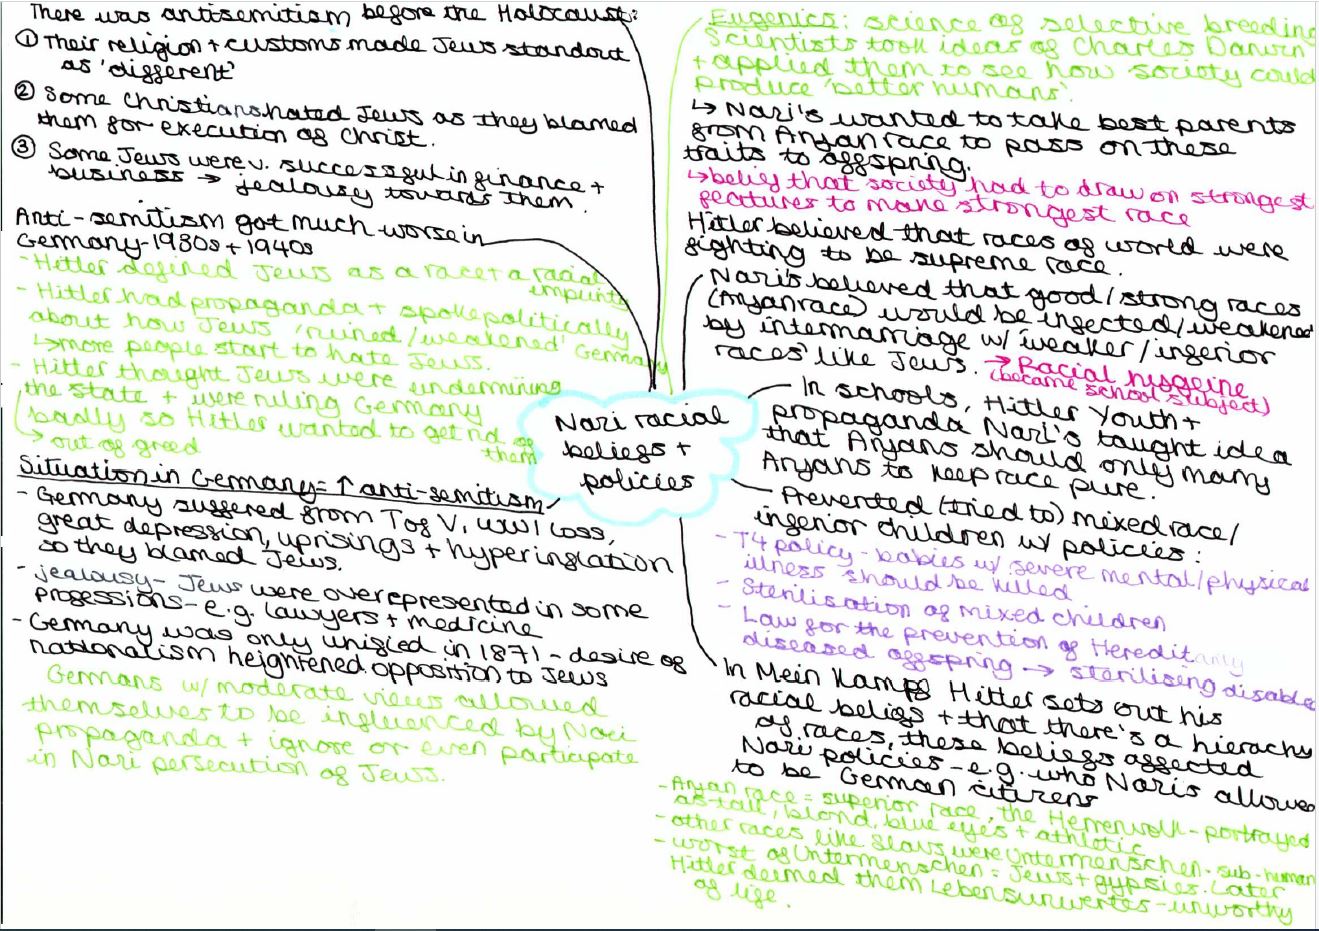 There was antisemitism before the Holocaust:
① Their religion + customs made Jews standout
as 'different'
② Some Christians hated Jews as they blamed
them for execution of Christ.
③ Some Jews were v. successful in finance +
business → jealousy towards them.
Anti-semitism got much worse in
Germany-1930s + 1940s
- Hitler defined Jews as a race + a racial
impurity
- Hitler had propaganda + spoke politically
about how Jews 'ruined/weakened' Germany
↳ more people start to hate Jews.
- Hitler thought Jews were undermining
the state + were ruling Germany
badly so Hitler wanted to get rid of
them
→ out of greed
Situation in Germany = ↑ anti-semitism
- Germany suffered from T of V, WW1 loss,
great depression, uprisings + hyperinflation
so they blamed Jews.
- jealousy - Jews were overrepresented in some
professions - e.g. lawyers + medicine
- Germany was only unified in 1871 - desire of
nationalism heightened opposition to Jews
Germans w/ moderate views allowed
themselves to be influenced by Nazi
propaganda + ignore or even participate
in Nazi persecution of Jews.
Nazi racial
beliefs +
policies
Eugenics: science of selective breeding
Scientists took ideas of Charles Darwin
+ applied them to see how society could
produce 'better humans'.
↳ Nazi's wanted to take best parents
from Aryan race to pass on these
traits to offspring.
↳ belief that society had to draw on strongest
features to make strongest race
Hitler believed that races of world were
fighting to be supreme race.
Nazi's believed that good/strong races
(Aryan race) would be infected/weakened
by intermarriage w/ 'weaker/inferior
races' like Jews. → Racial hygeine
(became school subject)
In schools, Hitler Youth +
propaganda Nazi's taught idea
that Aryans should only marry
Aryans to keep race pure.
Prevented (tried to) mixed race/
inferior children w/ policies:
- T4 policy - babies w/ severe mental/physical
illness should be killed
- Sterilisation of mixed children
- Law for the prevention of Hereditarily
diseased offspring → sterilising disabled
In Mein Kampf Hitler sets out his
racial beliefs + that there's a hierachy
of races, these beliefs affected
Nazi policies - e.g. who Nazis allowed
to be German citizens
- Aryan race = superior race, the Herrenvolk - portrayed
as tall, blond, blue eyes + athletic
- other races like Slavs were Untermenschen - sub-human
- worst of Untermenschen = Jews + gypsies. Later
Hitler deemed them Lebensunwertes - unworthy
of life.